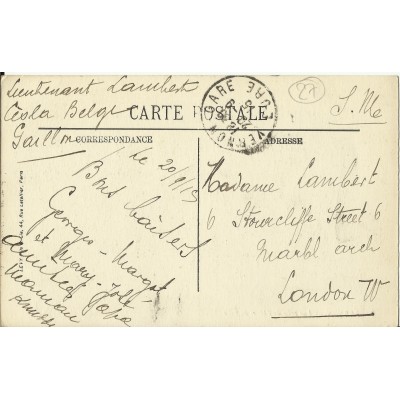 Lieutenant Lambert
Cesla Belge
Gaillon
CARTE POSTALE
CORRESPONDANCE
ADRESSE
GARE
VERNON
27
S.M
le 20/9/15
Bons baisers
Georges - Margot
et Mary-
papa
maman
Madame Lambert
6 Stourcliffe Street 6
Marbl arch
London W